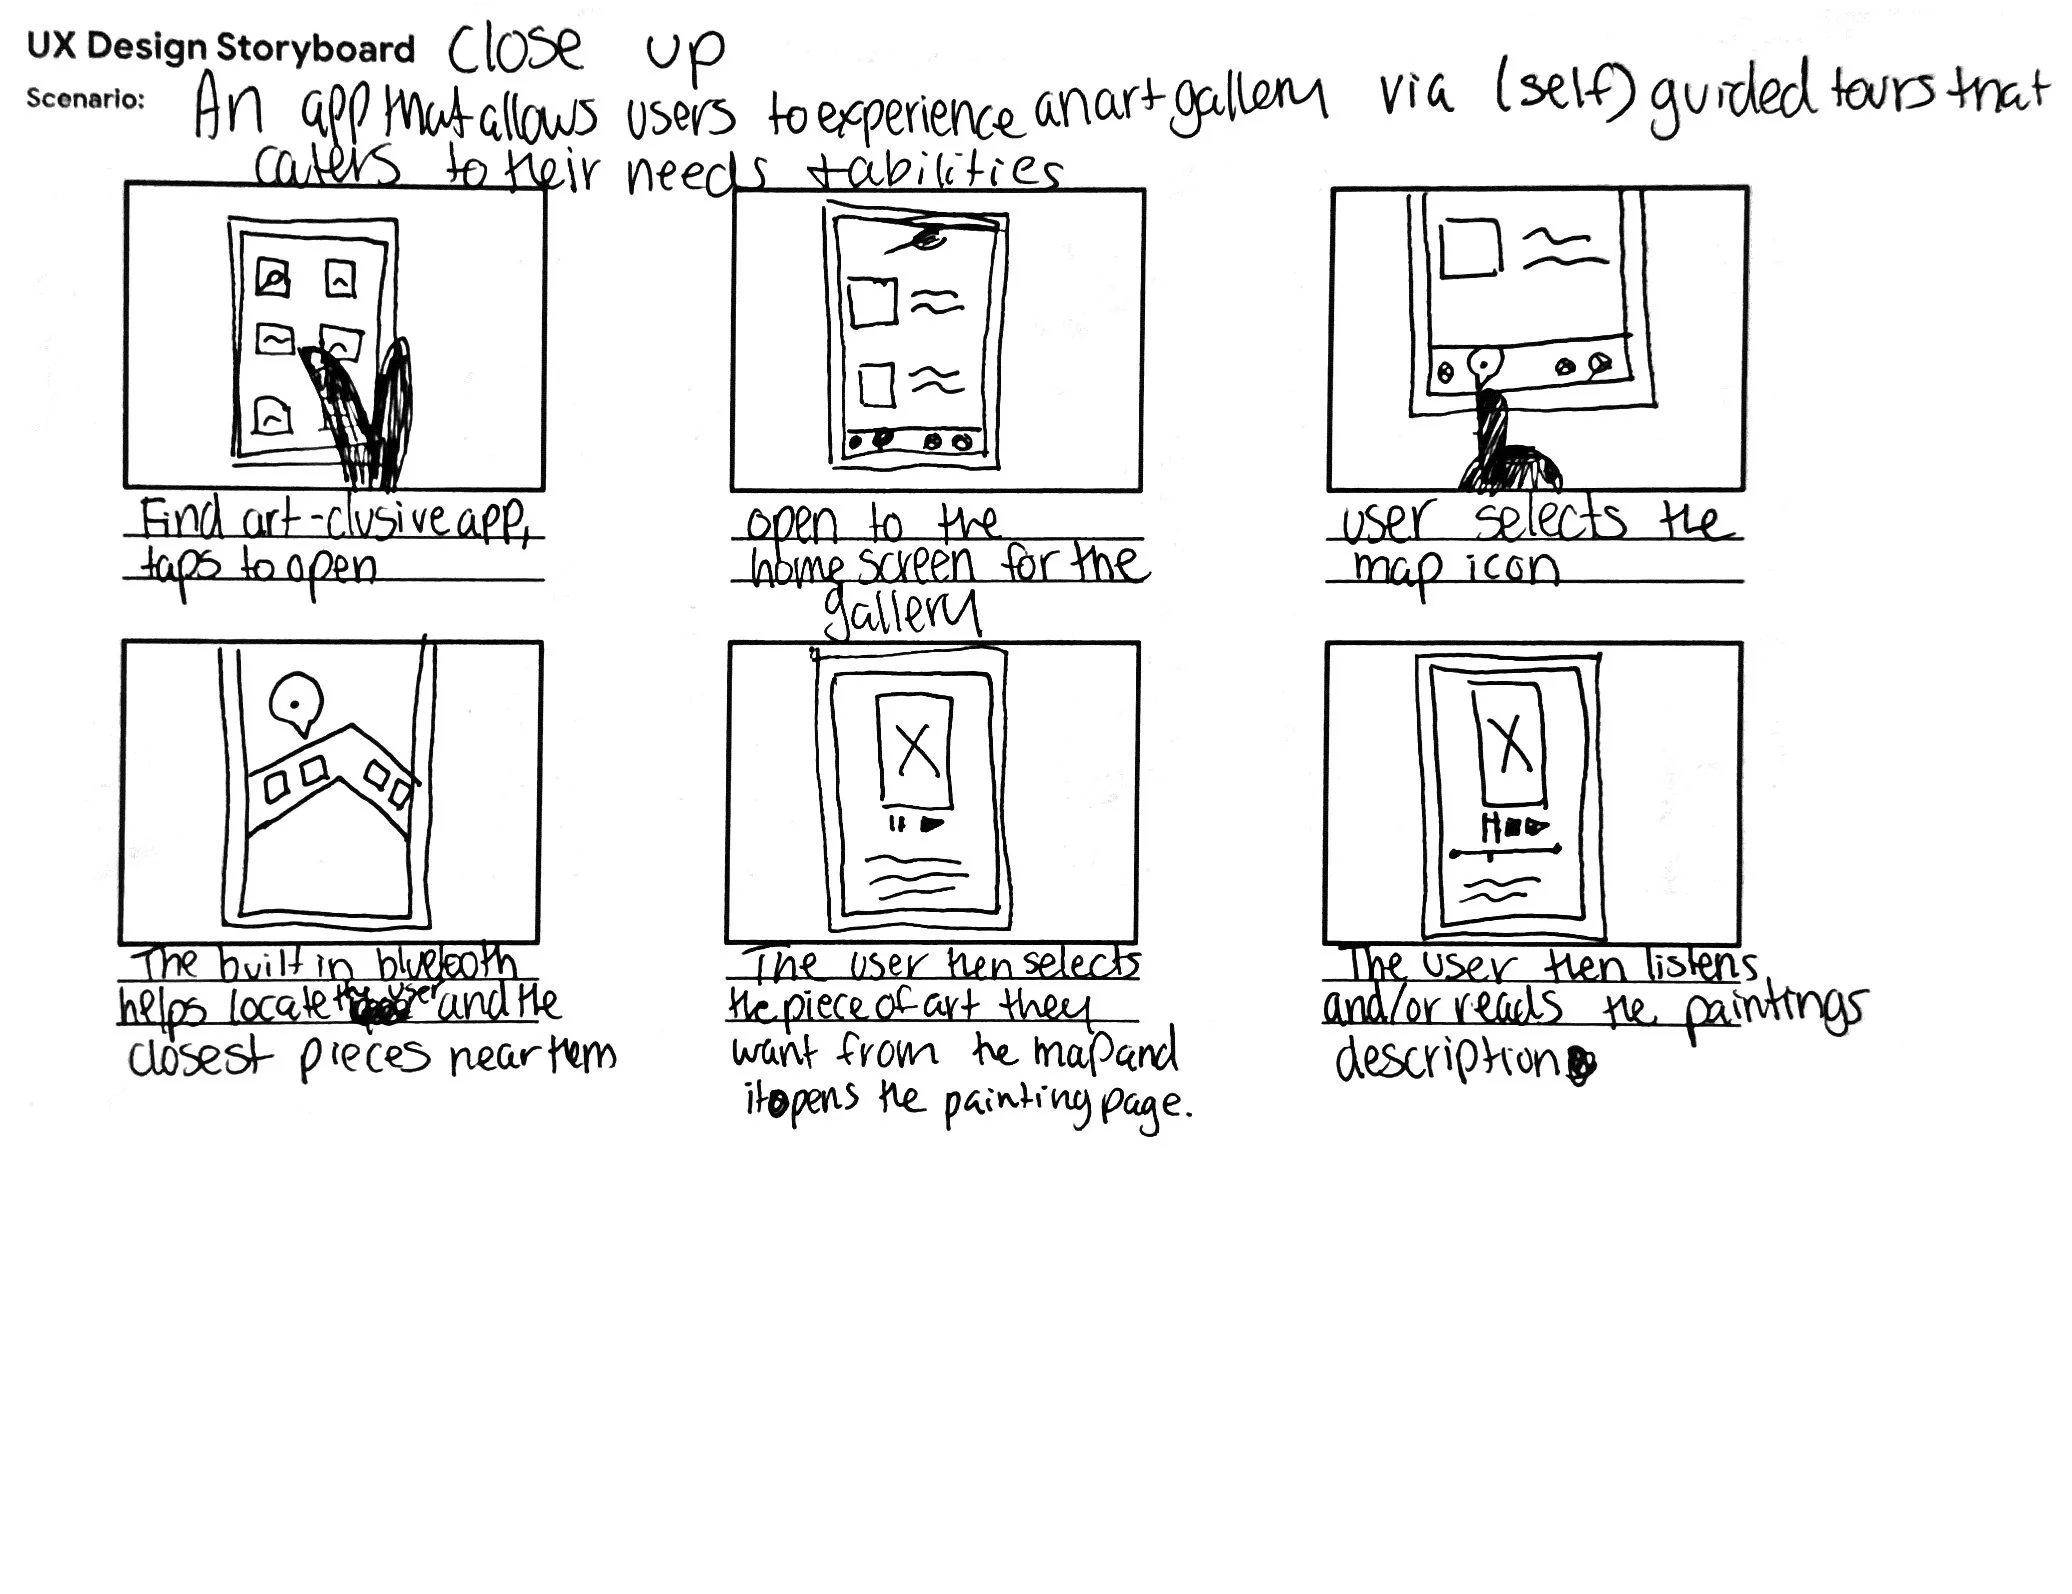 UX Design Storyboard close up
Scenario: An app that allows users to experience an art gallery via (self) guided tours that
caters to their needs + abilities
Find art-clusive app,
taps to open
open to the
home screen for the
gallery
user selects the
map icon
The built in bluetooth
helps locate the user and the
closest pieces near them
The user then selects
the piece of art they
want from the map and
it opens the painting page.
The user then listens
and/or reads the paintings
description